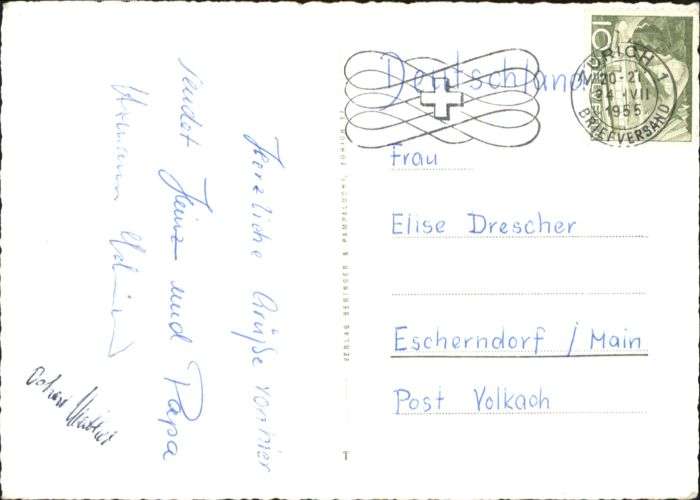 Herzliche Grüße von hier
sendet Heinz und Papa
Hermann
VERLAG BERINGER & PAMPALUCHI, ZÜRICH
Deutschland
10
ZÜRICH 1
20-21
24. VII
1955
BRIEFVERSAND
Frau
Elise Drescher
Escherndorf / Main
Post Volkach
T